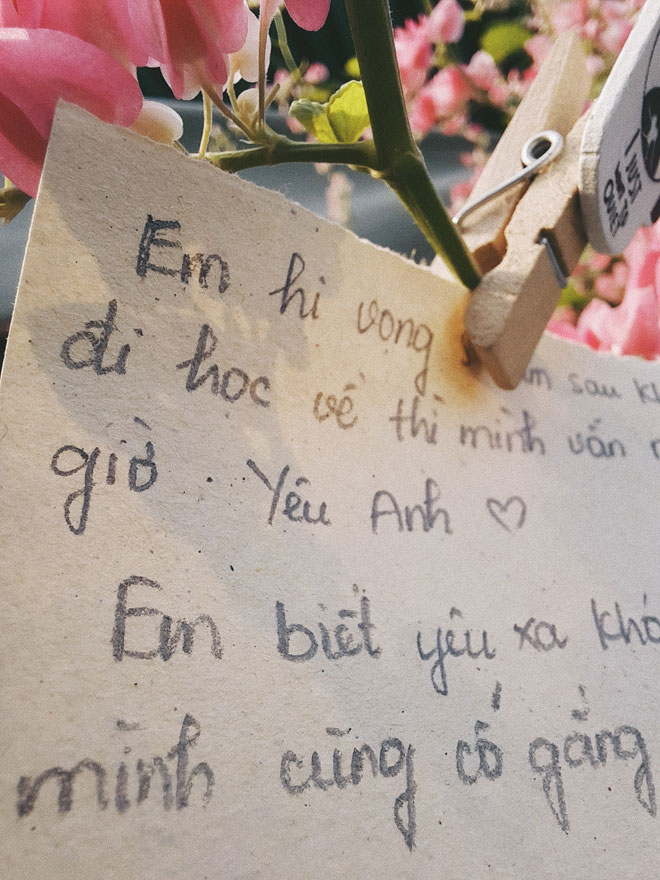 Em hi vọng sau
đi học về thì mình vẫn
giờ. Yêu Anh ♡
Em biết yêu xa khó
mình cùng cố gắng
JUST